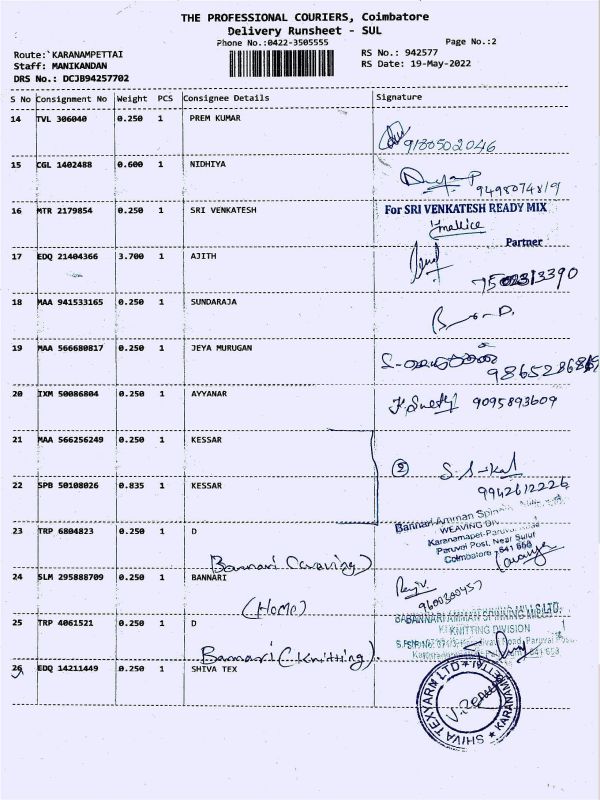 THE PROFESSIONAL COURIERS, Coimbatore
Delivery Runsheet - SUL
Phone No.:0422-3505555
Page No.:2
Route:`KARANAMPETTAI
RS No.: 942577
Staff: MANIKANDAN
RS Date: 19-May-2022
DRS No.: DCJB94257702
S No Consignment No Weight PCS Consignee Details Signature
14 TVL 306040 0.250 1 PREM KUMAR
9180502046
15 CGL 1402488 0.600 1 NIDHIYA
9498074819
16 MTR 2179854 0.250 1 SRI VENKATESH For SRI VENKATESH READY MIX
Partner
17 EDQ 21404366 3.700 1 AJITH
18 MAA 941533165 0.250 1 SUNDARAJA
19 MAA 566680817 0.250 1 JEYA MURUGAN
20 IXM 50086804 0.250 1 AYYANAR
9095893609
21 MAA 566256249 0.250 1 KESSAR
2
22 SPB 50108026 0.835 1 KESSAR
9942612226
23 TRP 6804823 0.250 1 D
Bannari Amman
WEAVING
Paruvai Post, Near Sulur
Coimbatore - 641 658
Bannari
24 SLM 295888709 0.250 1 BANNARI
9600300457
(HOMO)
25 TRP 4061521 0.250 1 D
BANNARI AMMAN SPINNING MILLS LTD.
KNITTING DIVISION
Bannari (Knitting).
26 EDQ 14211449 0.250 1 SHIVA TEX
SHIVA TEXYARN LTD ★ KARANAMPETTAI ★